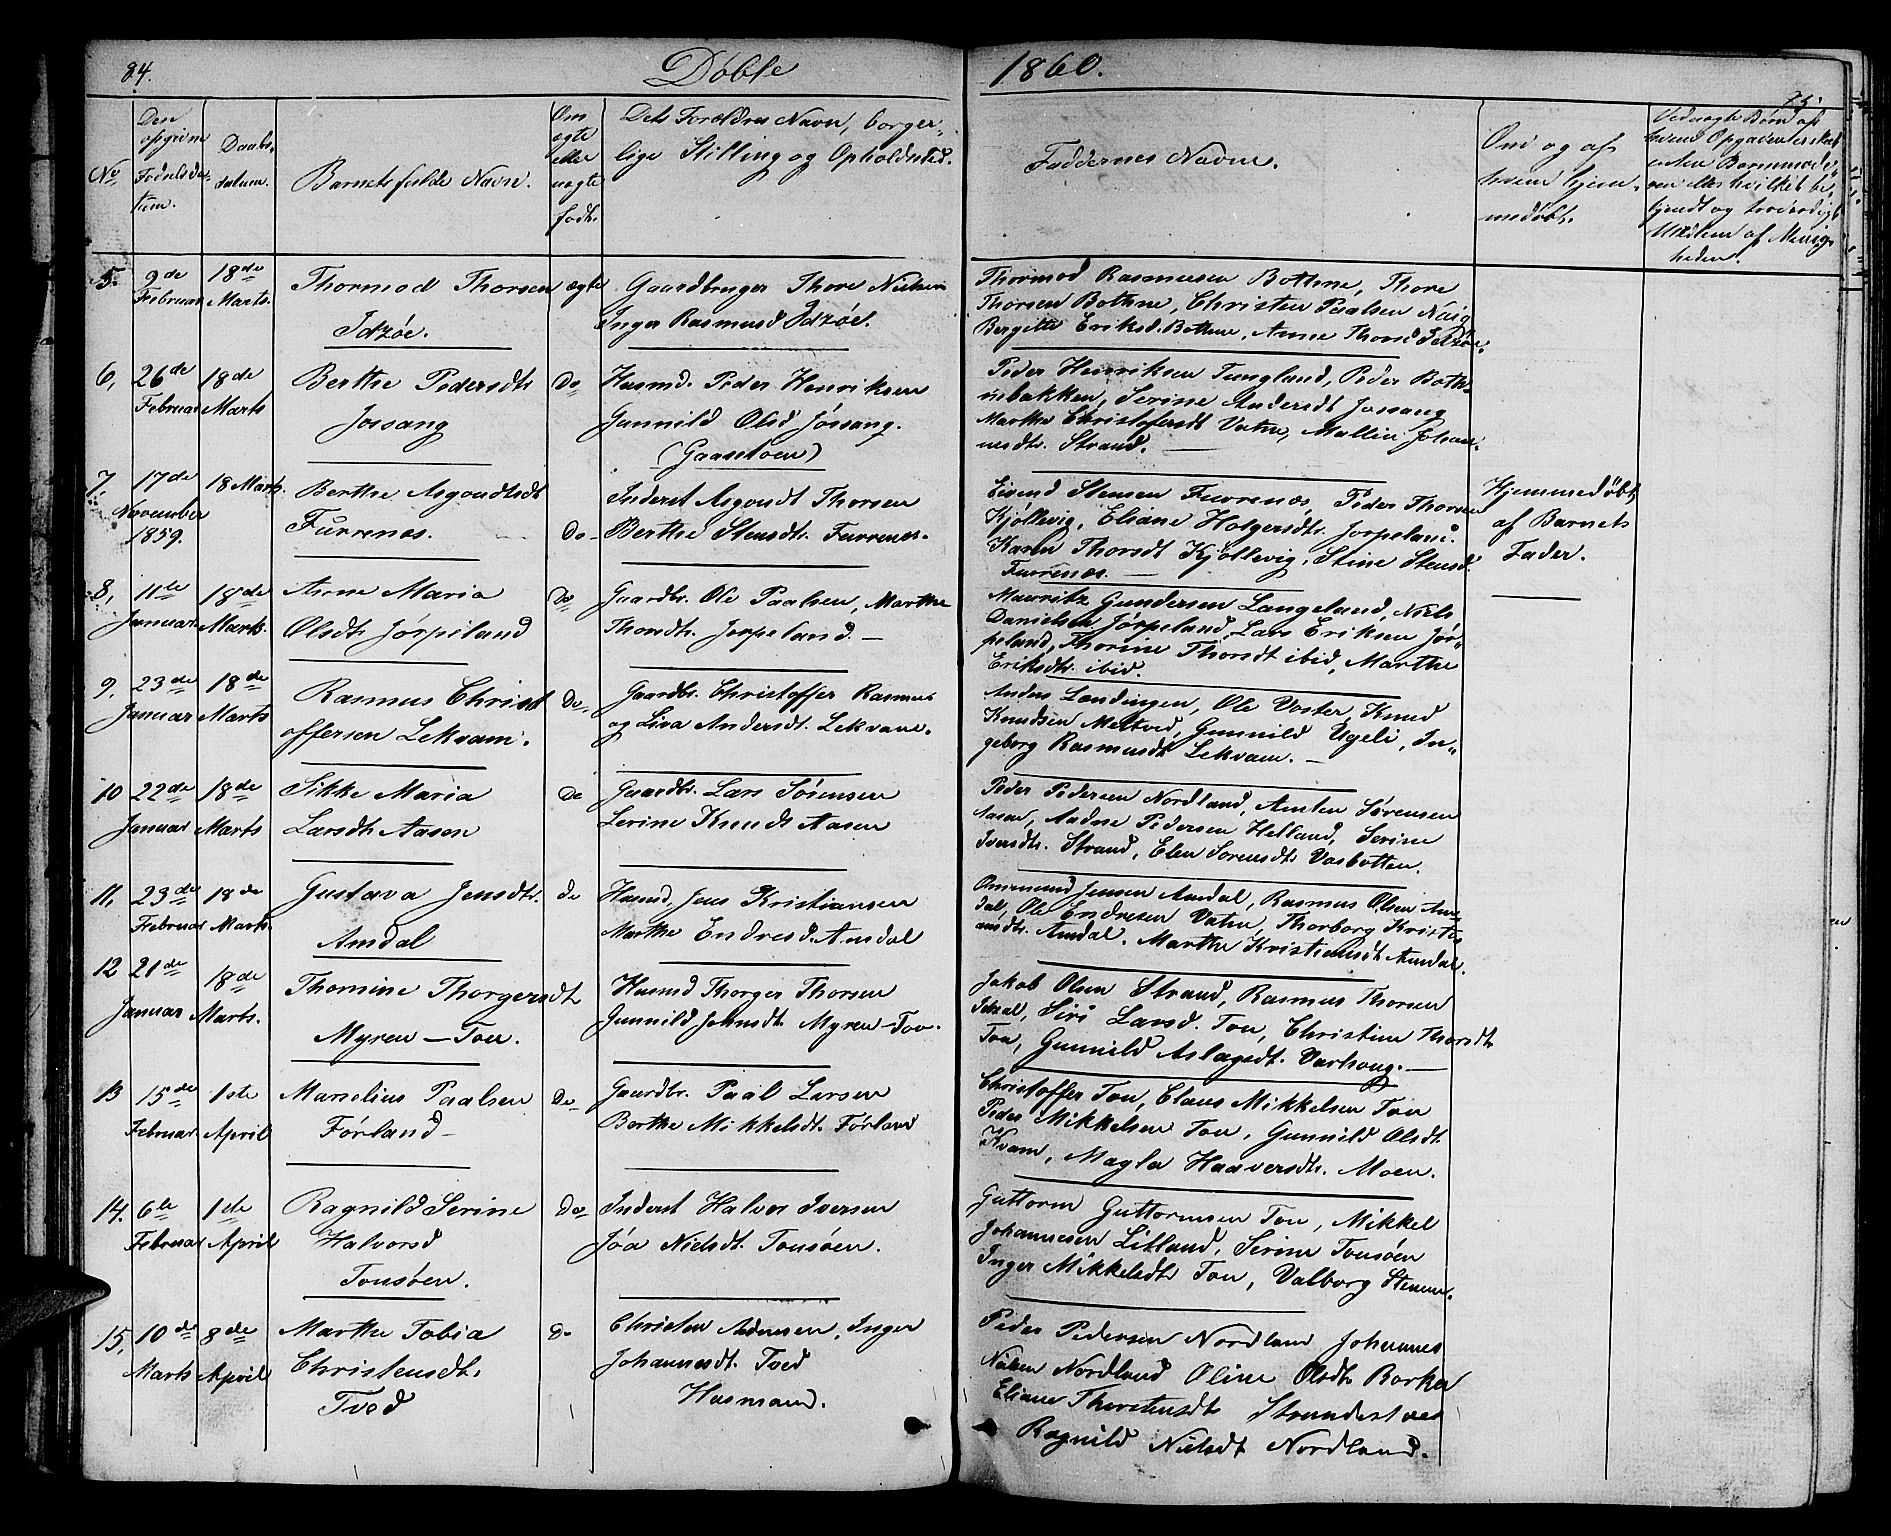 84.
Döbte
1860.
75.
No
Den opgivne Fødselsdatum.
Daabsdatum.
Barnets fulde Navn.
Om ægte eller uægte født.
Dets Forældres Navn, borgerlige Stilling og Opholdsted.
Faddernes Navne.
Om og af hvem hjemmedøbt.
Ved uægte Børn af hvem Opgaven
5. 9de Februar 18de Marts. Thormod Thorsen Idzøe. ægte
Gaardbruger Thore Nielsen
Inger Rasmusd Idzöe.
Thormod Rasmussen Bothne, Thore
Thorsen Bothne, Christen Paalsen Näig
Bergitte Eriksd. Bothne, Anne Thorsd Idzöe.
6, 26de Februar 18de Marts Berthe Pedersdt Jossang Do
Husmd. Peder Henriksen
Gunnild Olsd Jössang.
(Gaasetoen)
Peder Henriksen Tungland, Peder Both-
nebakken, Serine Andersdt Jossang
Marthe Christofersdt Vatne, Mallin Johan-
nesdt. Strand.
7. 17de November 1859. 18 Marts. Berthe Asgoudtsdt Furrenæs. Do-
Inderst Asgoudt Thorsen
Berthe Stensdt. Furrenæs.
Eivind Stensen Furrenæs, Peder Thorsen
Kjöllevig, Eliane Holgersdt. Jorpeland.
Karen Thorsdt Kjöllevig, Stine Stensd.
Furrenæs.
Hjemmedöbt
af Barnets
Fader.
8, 11te Januar 18de Marts. Anne Maria Olsdt. Jörpeland Do
Gaardbr. Ole Paalsen, Marthe
Thorsdt. Jorpeland.
Mauritz Gundersen Langeland, Niels
Danielsen Jörpeland, Lars Eriksen Jör-
peland, Thorine Thorsdt ibid, Marthe
Eriksdt. ibid.
9, 23de Januar 18de Marts Rasmus Christ
offersen Lekvam. Do-
Gaardbr. Christoffer Rasmus
og Liva Andersdt. Lekvam.
Anders Landingen, Ole Voster, Knud
Knudsen Meltved, Gunnild Ugeli, In-
geborg Rasmusdt Lekvam.
10 22de Januar 18de Marts Sikke Maria
Larsdt. Aasen Do
Gaardbr. Lars Sörensen
Serine Knudst Aasen
Peder Pedersen Nordland, Amten Sörensen
Aasen, Andne Pedersen Helland, Serine
Iversdt. Strand, Elen Sorensdt. Vasbotten.
11, 23de Februar 18de Marts. Gustava Jensdt.
Amdal do
Husmd. Jens Kristiansen
Marthe Endresd. Amdal
Ommund Jensen Amdal, Rasmus Olsen Am-
dal, Ole Endresen Vatne, Thorborg Kristi-
ansdt. Amdal. Marthe Kristiansdt Amdal.
12 21de Januar 18de Marts. Thomine Thorgersdt
Myren - Tou.
Husmd Thorger Thorsen
Gunnild Johnsdt. Myren-Tou.
Jakob Olsen Strand, Rasmus Thorsen
Idsal, Siri Larsd. Tou, Christine Thorsdt
Tou, Gunnild Aslagsdt. Varhoug.
13 15de Februar 1ste April Marselius Paalsen
Förland Do-
Gaardbr. Paal Larsen
Berthe Mikkelsdt. Förland
Christoffer Tou, Claus Mikkelsen Tou
Peder Mikkelsen Tou, Gunnild Olsdt.
Kvam, Magla Haaversdt. Moen.
14. 6te Februar 1ste April Ragnild Serine
Halvorsd
Tousöen. Do-
Inderst Halvor Iversen
Jöa Nielsdt. Tousöen.
Guttorm Guttormsen Tou, Mikkel
Johannesen Litland, Serine Tousöen
Inger Mikkelsdt. Tou, Valborg
15, 10de Marts 8de April Marthe Tobia
Christensdt.
Tved Do
Christen Adnesen, Inger
Johannesdt. Tved
Husmand.
Peder Pedersen Nordland Johannes
Nilsen Nordland Oline Olsdt.
Eliane Thorstensdt
Ragnild Nielsdt Nordland.